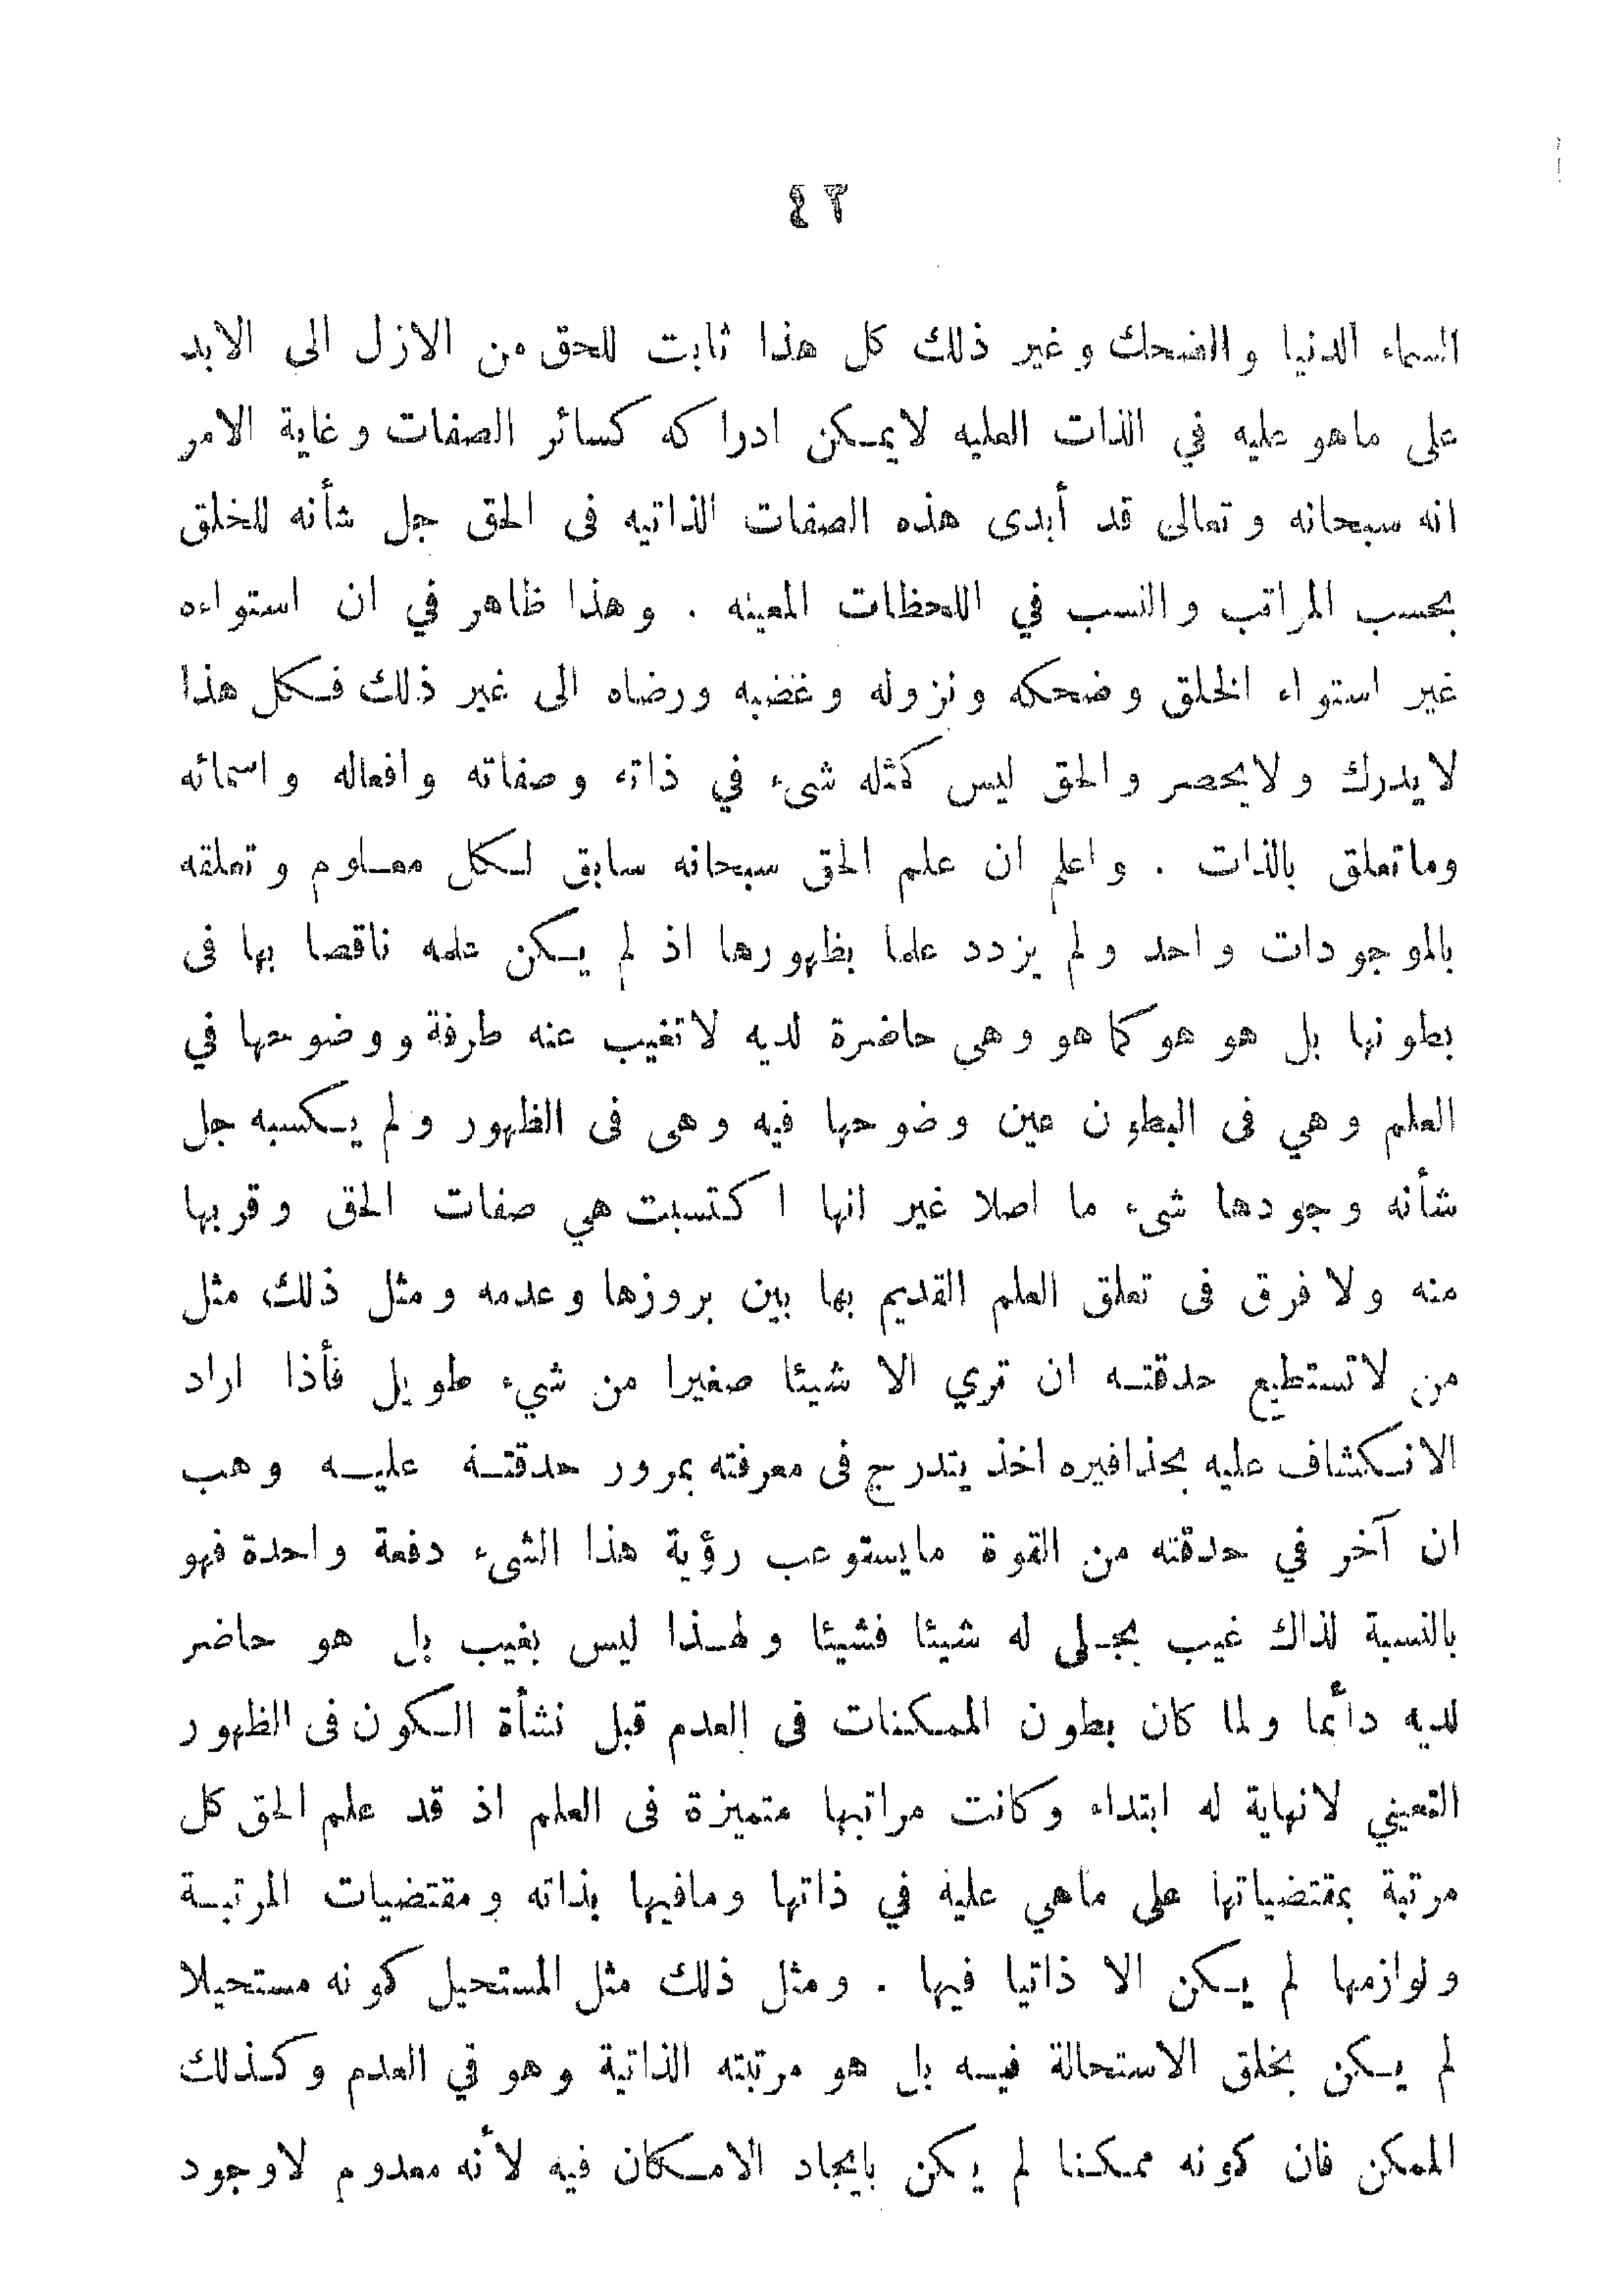 ٤٣
السماء الدنيا والضحك وغير ذلك كل هذا ثابت للحق من الازل الى الابد
على ماهو عليه في الذات العليه لايمكن ادراكه كسائر الصفات وغاية الامر
انه سبحانه وتعالى قد أبدى هذه الصفات الذاتيه فى الحق جل شأنه للخلق
بحسب المراتب والنسب في اللحظات المعينه . وهذا ظاهر في ان استواءه
غير استواء الخلق وضحكه ونزوله وغضبه ورضاه الى غير ذلك فكل هذا
لايدرك ولايحصر والحق ليس كمثله شىء في ذاته وصفاته وافعاله واسمائه
وماتعلق بالذات . واعلم ان علم الحق سبحانه سابق لكل معلوم وتعلقه
بالموجودات واحد ولم يزدد علما بظهورها اذ لم يكن علمه ناقصا بها فى
بطونها بل هو هو كما هو وهى حاضرة لديه لاتغيب عنه طرفة ووضوحها في
العلم وهي فى البطون عين وضوحها فيه وهى فى الظهور ولم يكسبه جل
شأنه وجودها شىء ما اصلا غير انها اكتسبت هي صفات الحق وقربها
منه ولا فرق فى تعلق العلم القديم بها بين بروزها وعدمه ومثل ذلك مثل
من لاتستطيع حدقته ان تري الا شيئا صغيرا من شيء طويل فأذا اراد
الانكشاف عليه بحذافيره اخذ يتدرج فى معرفته بمرور حدقتة عليه وهب
ان آخر في حدقته من القوة مايستوعب رؤية هذا الشىء دفعة واحدة فهو
بالنسبة لذاك غيب يجلى له شيئا فشيئا ولهذا ليس بغيب بل هو حاضر
لديه دائما ولما كان بطون الممكنات فى العدم قبل نشأة الكون فى الظهور
التعيني لانهاية له ابتداء وكانت مراتبها متميزة فى العلم اذ قد علم الحق كل
مرتبة بمقتضياتها على ماهي عليه في ذاتها ومافيها بذاته ومقتضيات المرتبة
ولوازمها لم يكن الا ذاتيا فيها . ومثل ذلك مثل المستحيل كونه مستحيلا
لم يكن بخلق الاستحالة فيه بل هو مرتبته الذاتية وهو في العدم وكذلك
الممكن فان كونه ممكنا لم يكن بايجاد الامكان فيه لأنه معدوم لاوجود